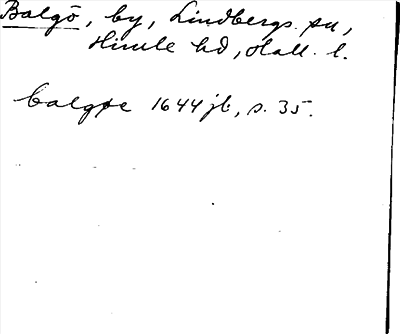 Balgö, by, Lindbergs sn,
Himle hd, Hall. l.
balgøe 1644 jb, s. 35.